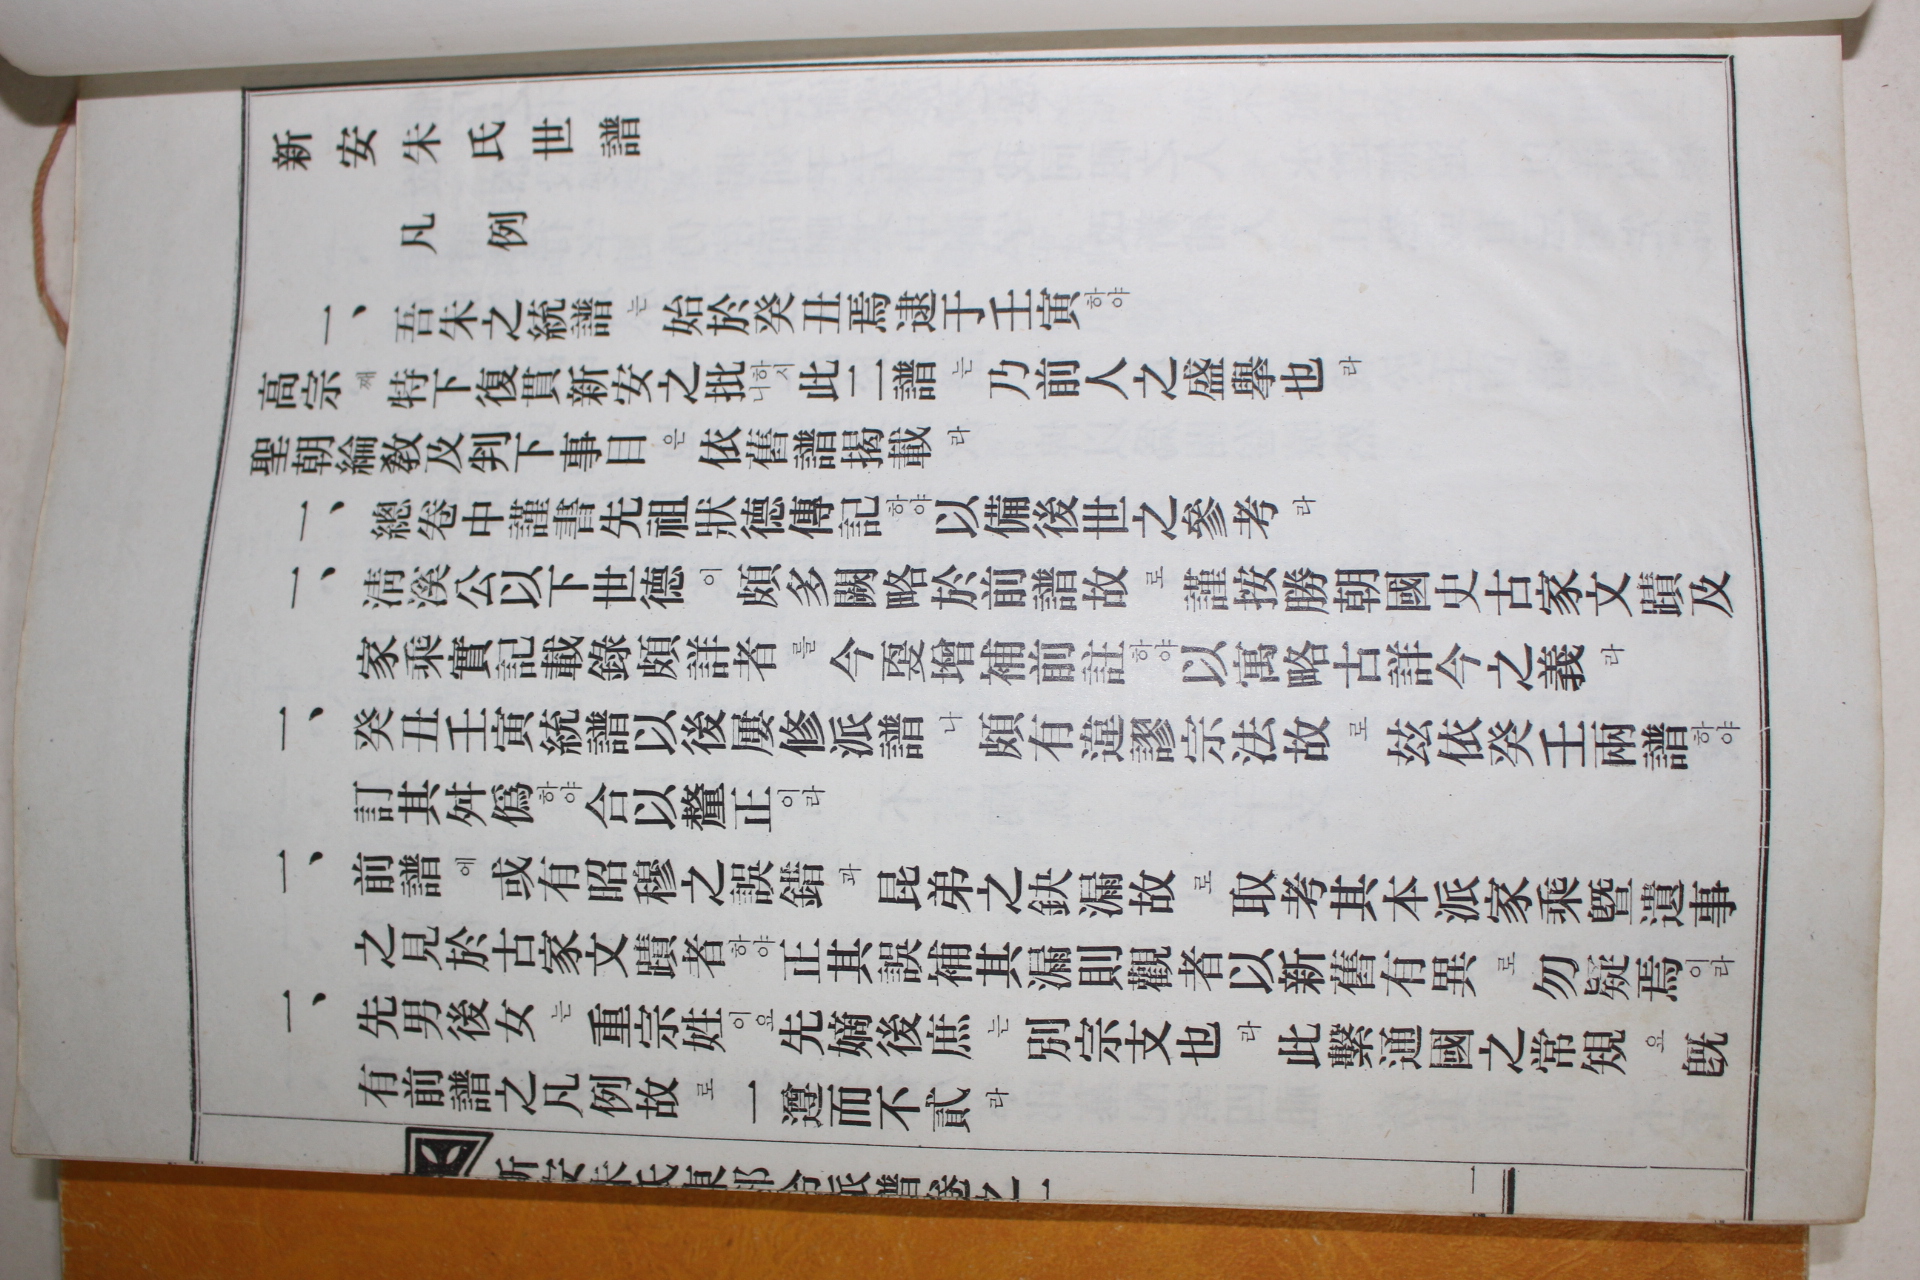 新安朱氏世譜
凡例
一、吾朱之統譜는始於癸丑焉逮于壬寅하야
高宗째特下復貫新安之批내하시此二譜는乃前人之盛擧也라
聖朝綸教及判下事目은依舊譜揭載라
一、總卷中謹書先祖狀德傳記하야以備後世之參考라
一、淸溪公以下世德이頗多闕略於前譜故로謹按勝朝國史古家文蹟及
家乘實記載錄頗詳者를今耍增補前註하야以寓略古詳今之義라
一、癸丑壬寅統譜以後屢修派譜나頗有違謬宗法故로玆依癸壬兩譜하야
訂其舛僞하야合以釐正이라
一、前譜에或有昭穆之誤錯과昆弟之缺漏故로取考其本派家乘曁遺事
之見於古家文蹟者하야正其誤補其漏則觀者以新舊有異로勿疑焉이라
一、先男後女는重宗姓이요先嫡後庶는別宗支也라此繫通國之常規요旣
有前譜之凡例故로一遵而不貳라
新安朱氏東部令派譜卷之一
一